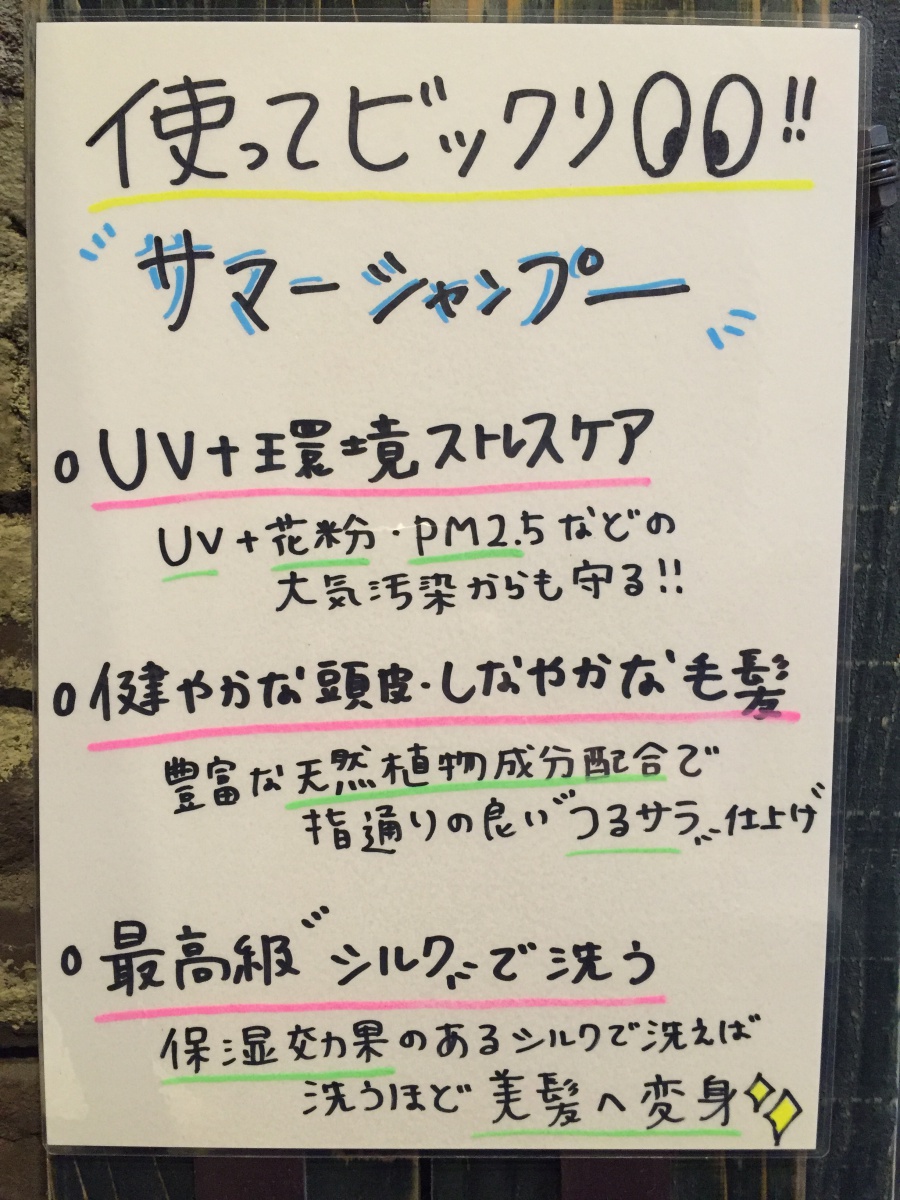 使ってビックリ👀!!
"サマーシャンプー"
○UV+環境ストレスケア
UV+花粉・PM2.5などの
大気汚染からも守る!!
○健やかな頭皮・しなやかな毛髪
豊富な天然植物成分配合で
指通りの良い"つるサラ"仕上げ
○最高級"シルク"で洗う
保湿効果のあるシルクで洗えば
洗うほど美髪へ変身